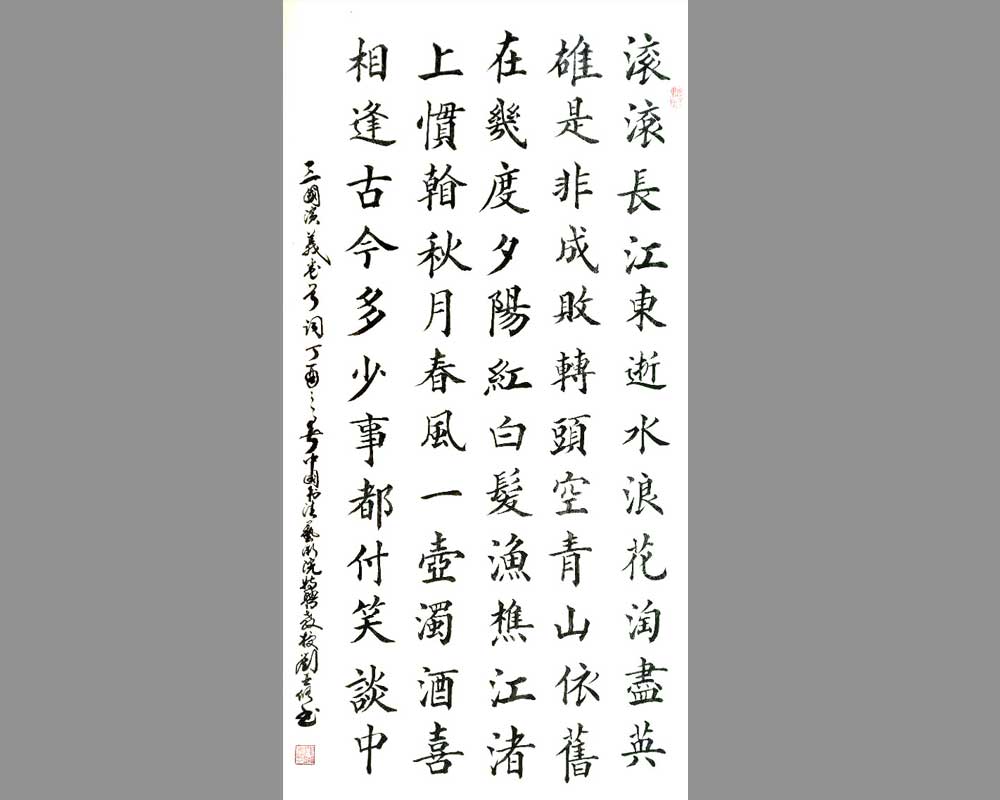 滚滚長江東逝水浪花淘盡英
雄是非成敗轉頭空青山依舊
在幾度夕陽紅白髮漁樵江渚
上慣看秋月春風一壺濁酒喜
相逢古今多少事都付笑談中
三國演義卷首詞丁酉之春中國书法藝術院特聘教授劉书